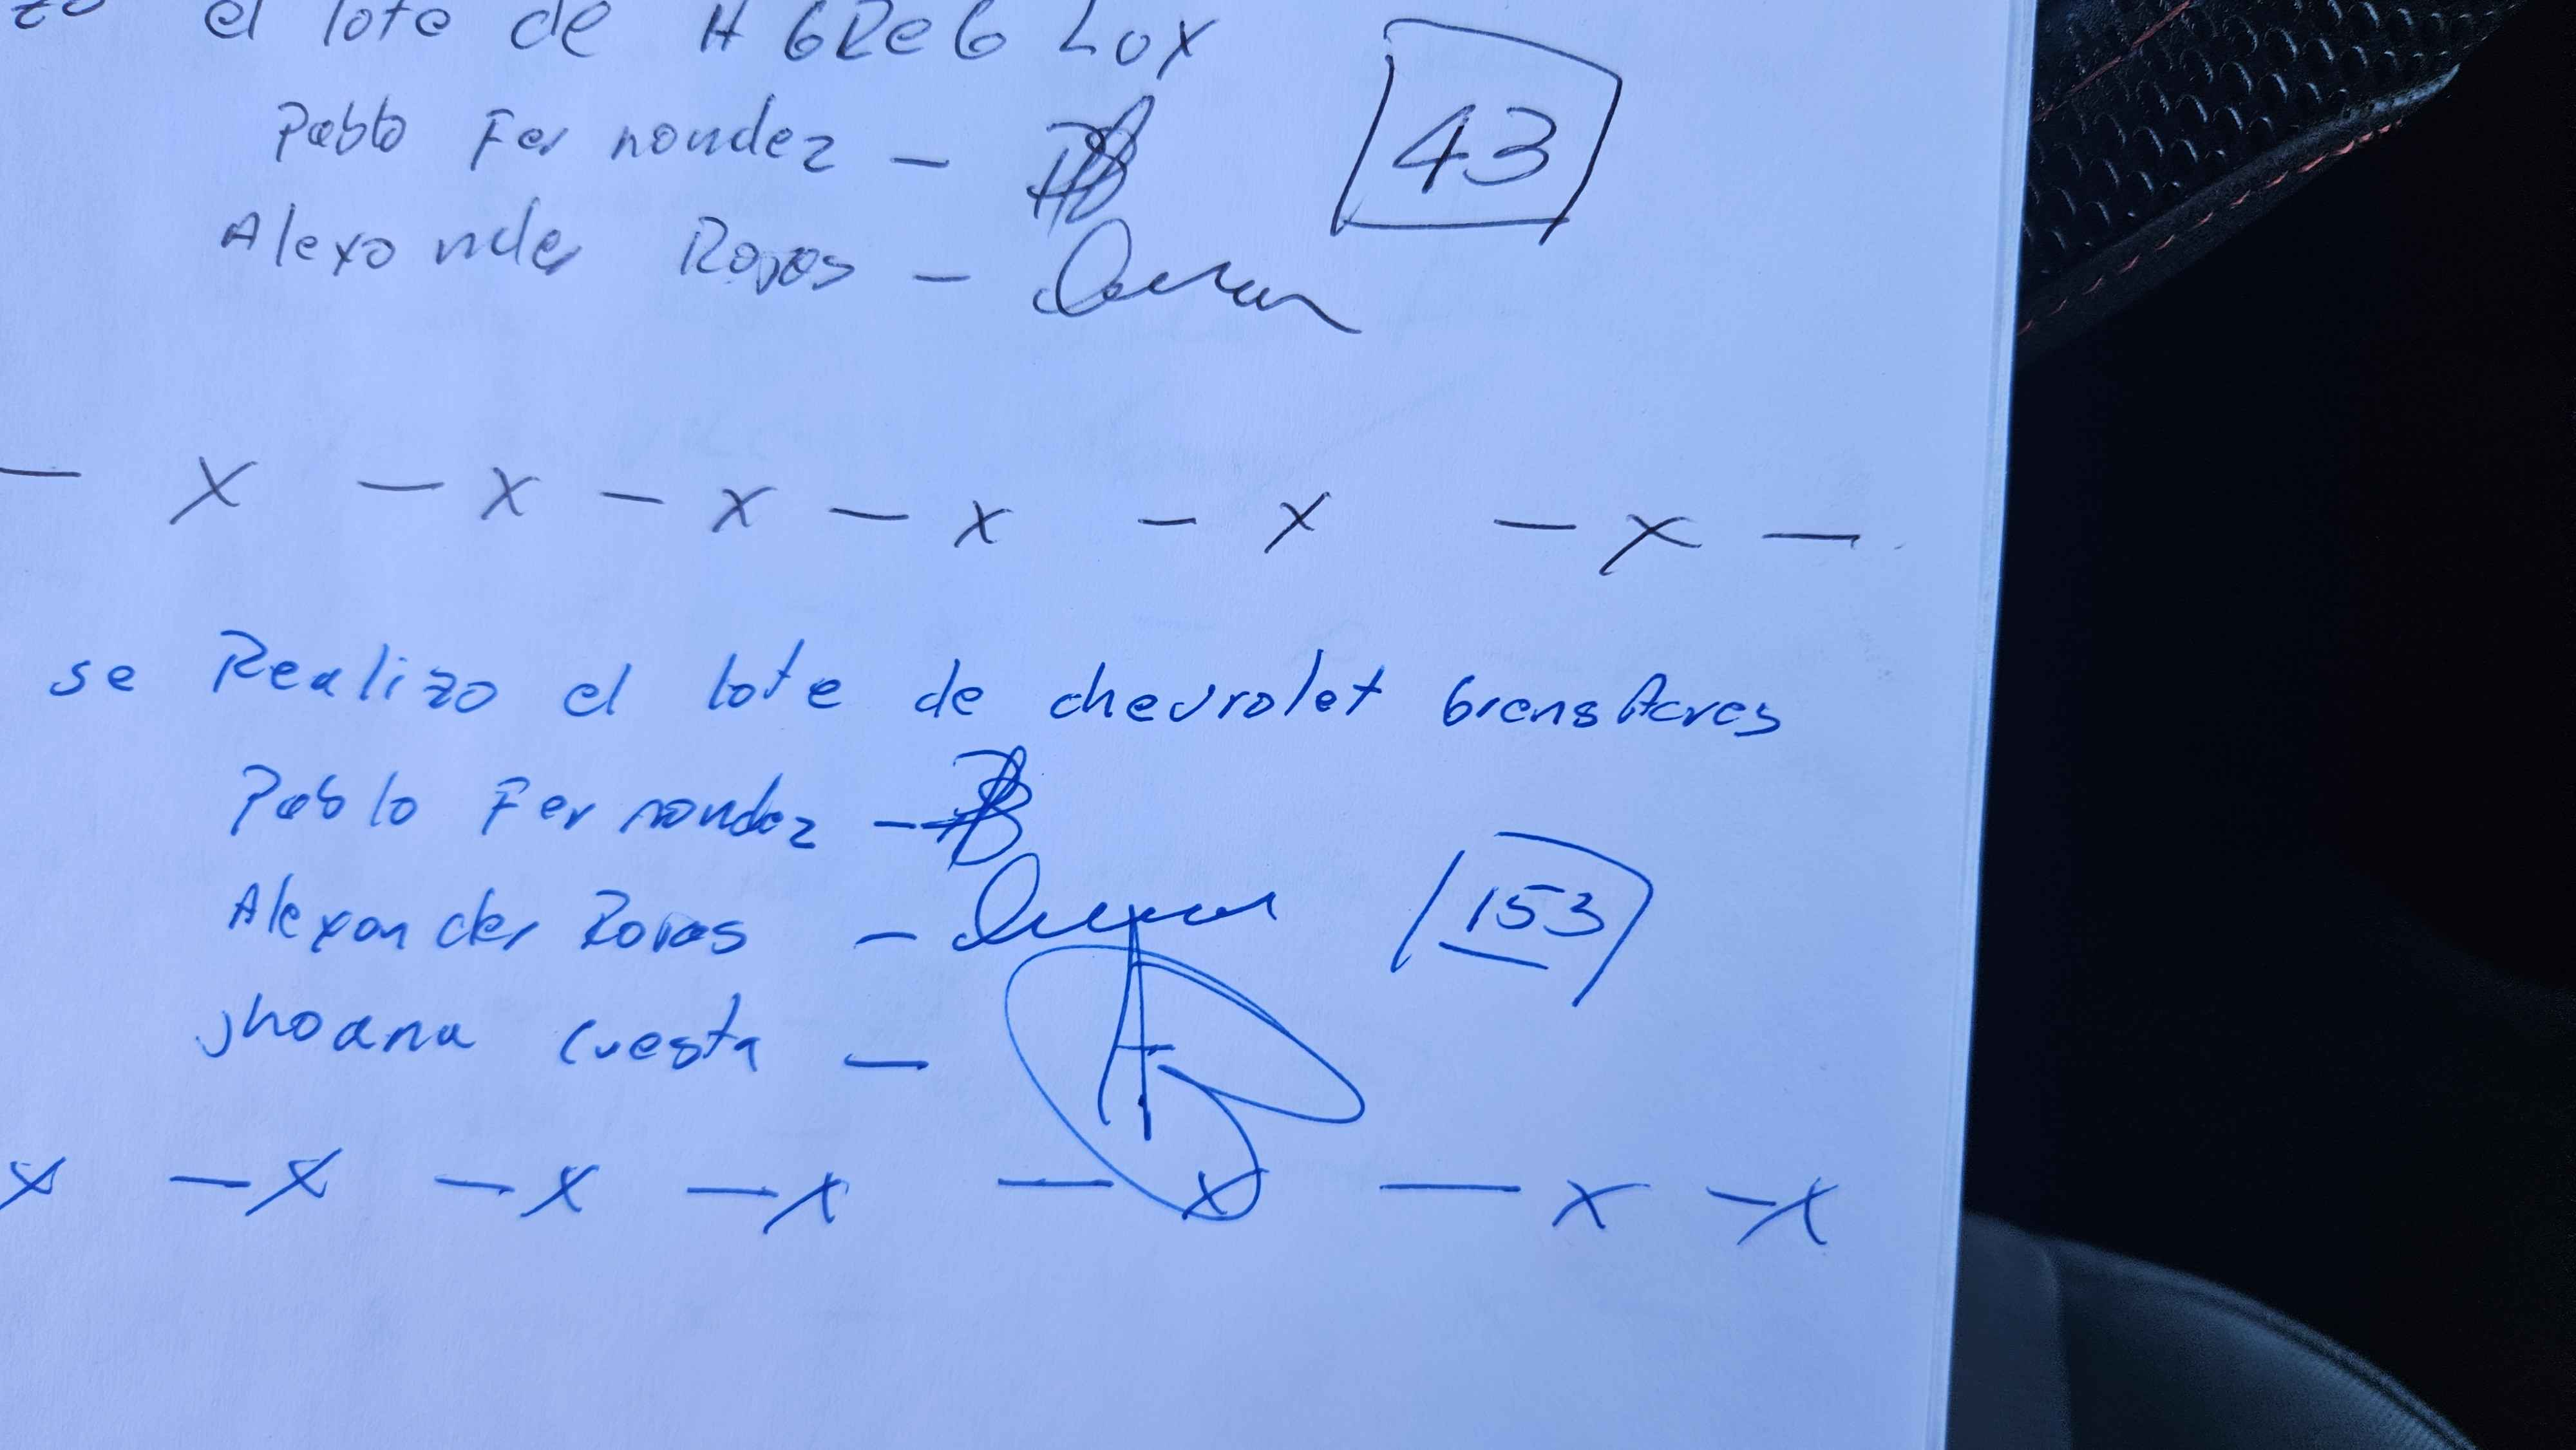 zo el lote de HGReG Lux
Pablo Fernandez -
43
Alexander Rojas -
- x - x - x - x - x - x -
se Realizo el lote de chevrolet GrensAcres
Pablo Fernandez -
Alexander Rojas -
153
jhoana cuesta -
x - x - x - x - x - x - x